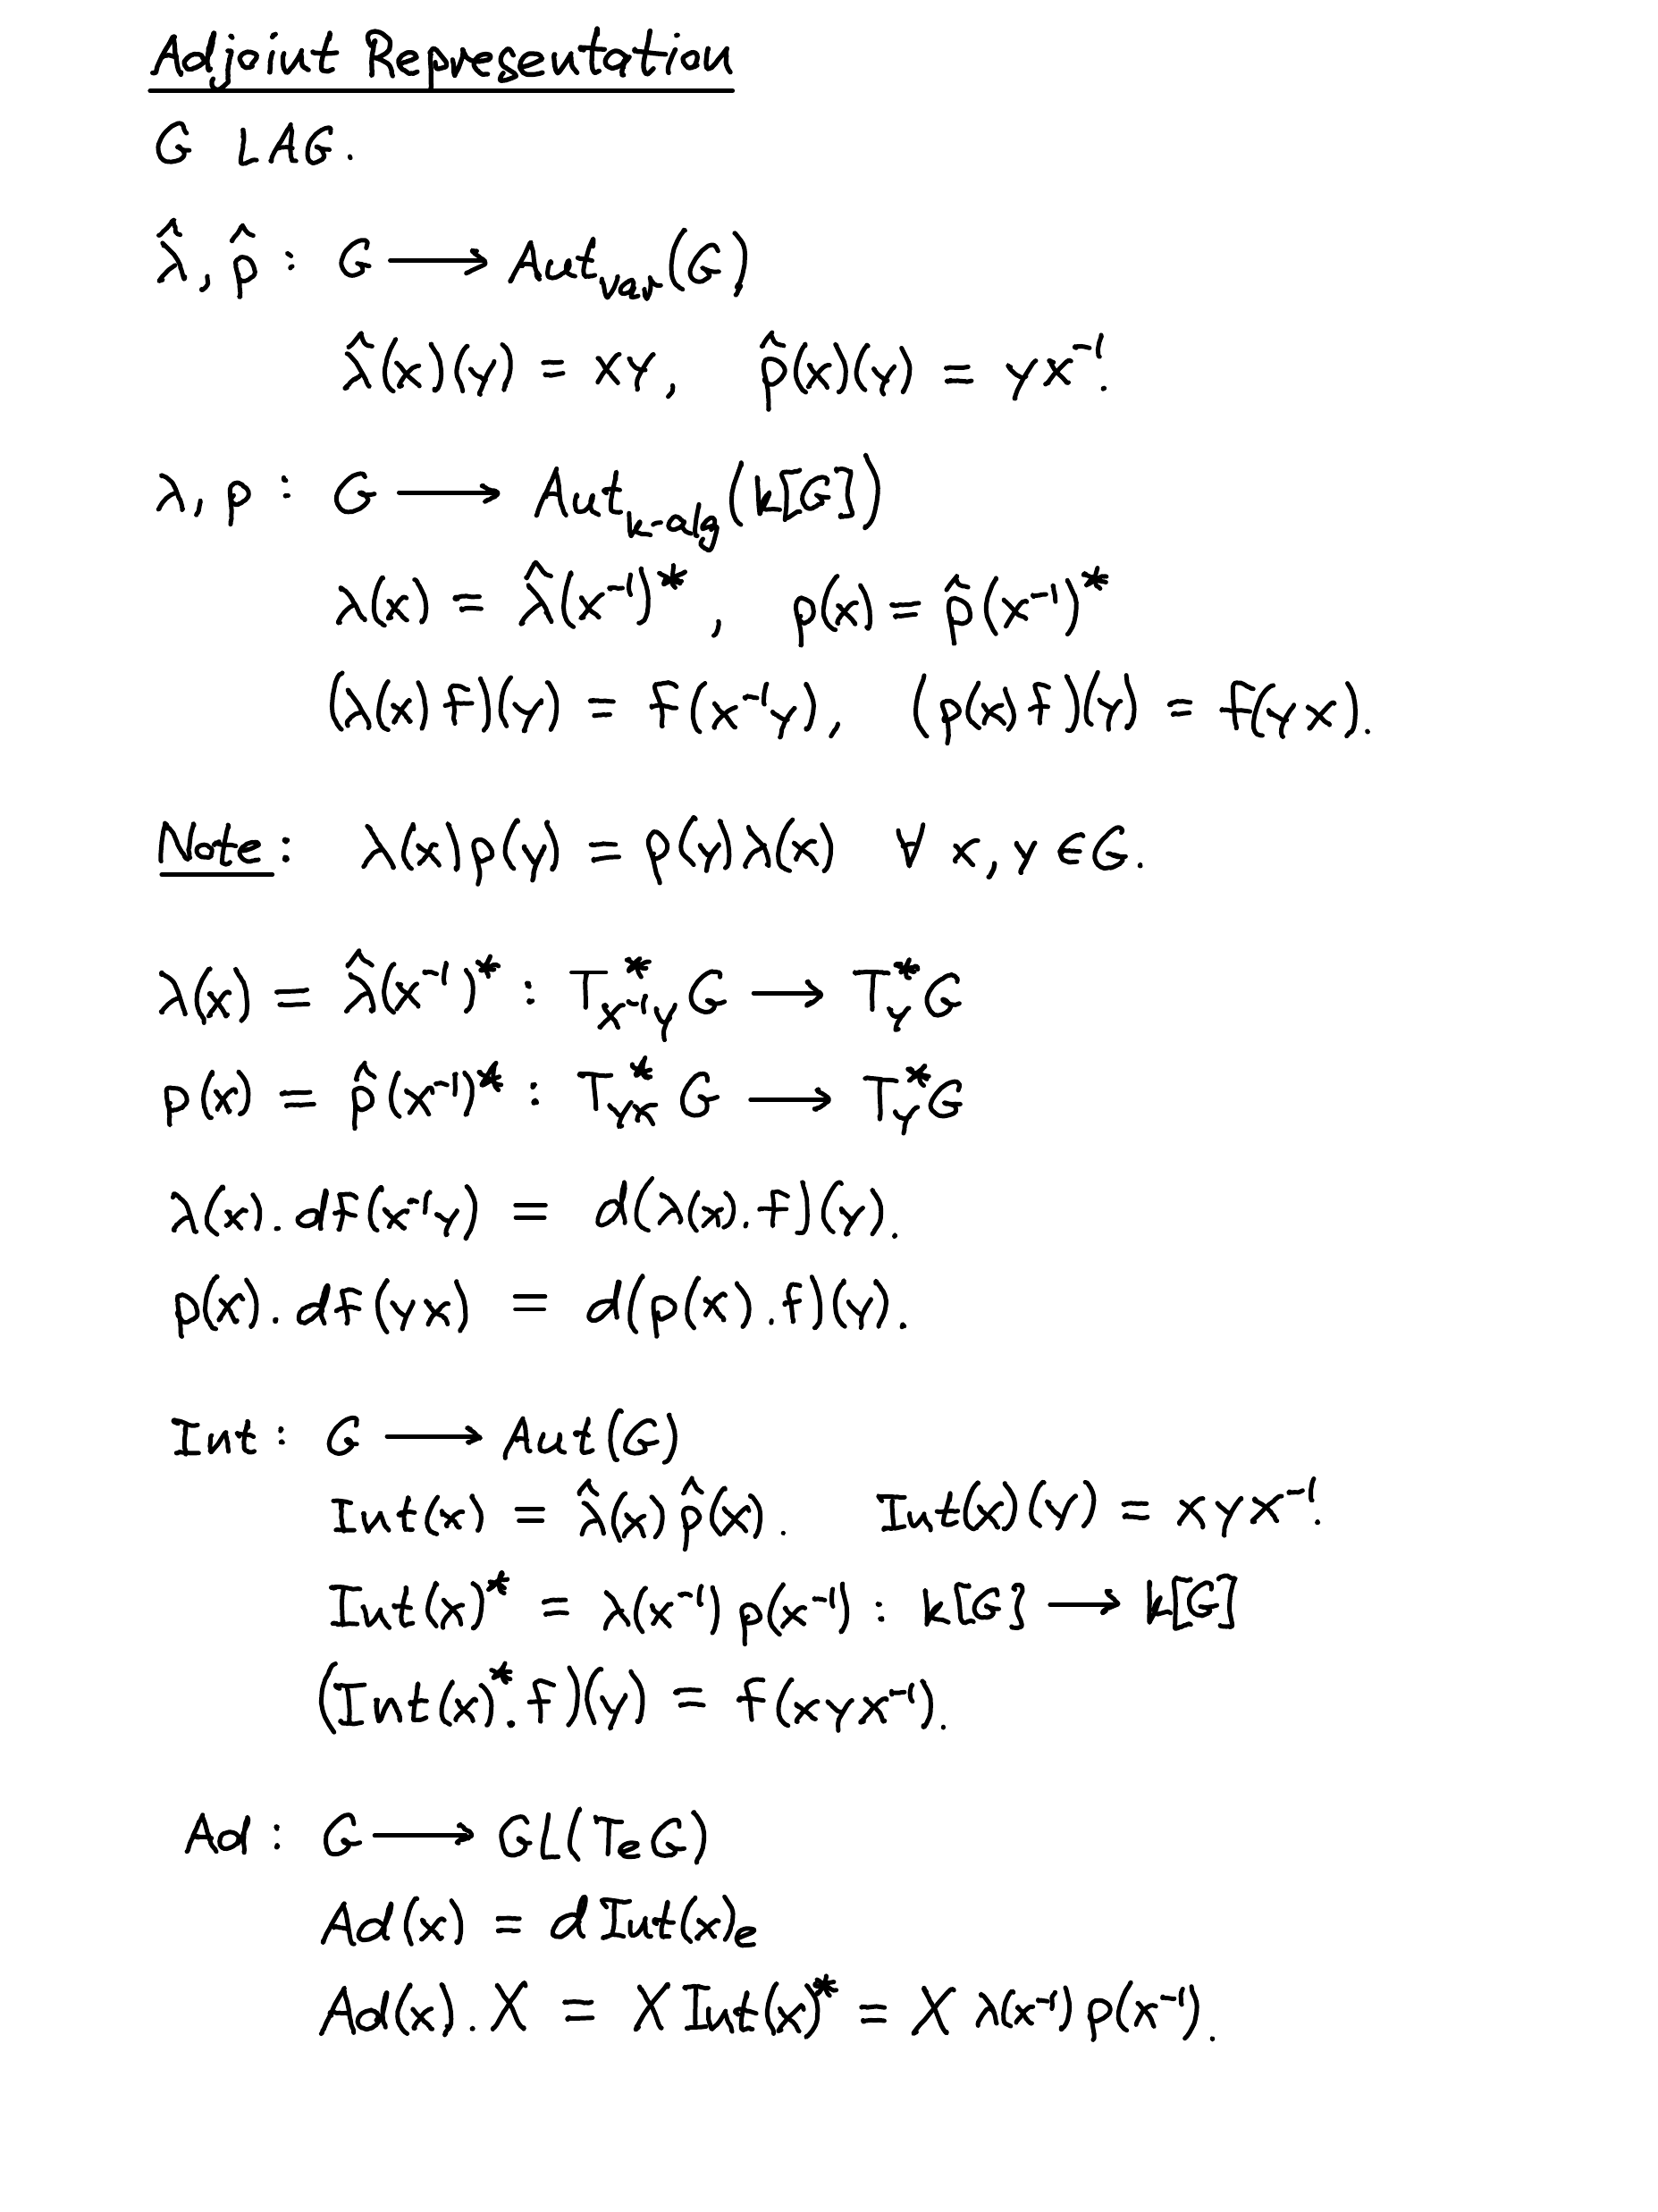 Adjoint Representation
G LAG.
λ̂, ρ̂ : G ⟶ Aut_var(G)
λ̂(x)(y) = xy, ρ̂(x)(y) = yx⁻¹.
λ, ρ : G ⟶ Aut_k-alg(k[G])
λ(x) = λ̂(x⁻¹)*, ρ(x) = ρ̂(x⁻¹)*
(λ(x)f)(y) = f(x⁻¹y), (ρ(x)f)(y) = f(yx).
Note: λ(x)ρ(y) = ρ(y)λ(x) ∀ x, y ∈ G.
λ(x) = λ̂(x⁻¹)* : T*_{x⁻¹y} G ⟶ T*_y G
ρ(x) = ρ̂(x⁻¹)* : T*_{yx} G ⟶ T*_y G
λ(x). df(x⁻¹y) = d(λ(x).f)(y).
ρ(x). df(yx) = d(ρ(x).f)(y).
Int : G ⟶ Aut(G)
Int(x) = λ̂(x)ρ̂(x). Int(x)(y) = xyx⁻¹.
Int(x)* = λ(x⁻¹)ρ(x⁻¹) : k[G] ⟶ k[G]
(Int(x)*.f)(y) = f(xyx⁻¹).
Ad : G ⟶ GL(T_e G)
Ad(x) = d Int(x)_e
Ad(x). X = X Int(x)* = X λ(x⁻¹)ρ(x⁻¹).